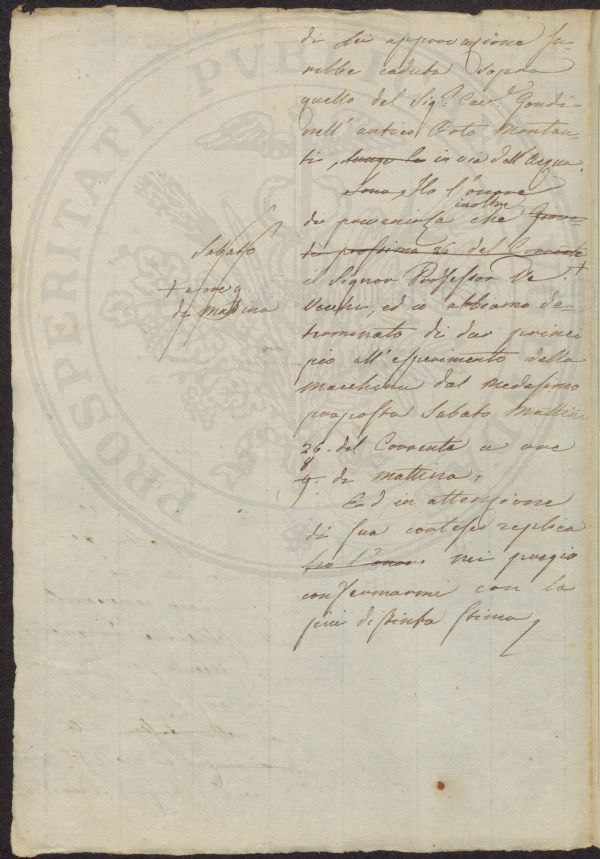 di lei approvazione sa-
rebbe caduta sopra
quello del Sig.r Cav.r Gondi
nell' antico Orto Montau-
ti, lungo la in via dell' Acqua.
Sono, Ho l'onore
di prevenirla che inoltre Giove-
dì prossimo 26 del Corrente +
il Signor Professor De
Vecchi, ed io abbiamo de-
terminato di dar princi
pio all' esperimento della
Macchina dal medesimo
proposta Sabato Mattina
26. del Corrente a ore
8
9. di Mattina.
Ed in attenzione
di sua cortese replica
ho l'onore mi pregio
confermarmi con la
più distinta stima
Sabato
+ a ore 9
di Mattina
PROSPERITATI PUBLICAE